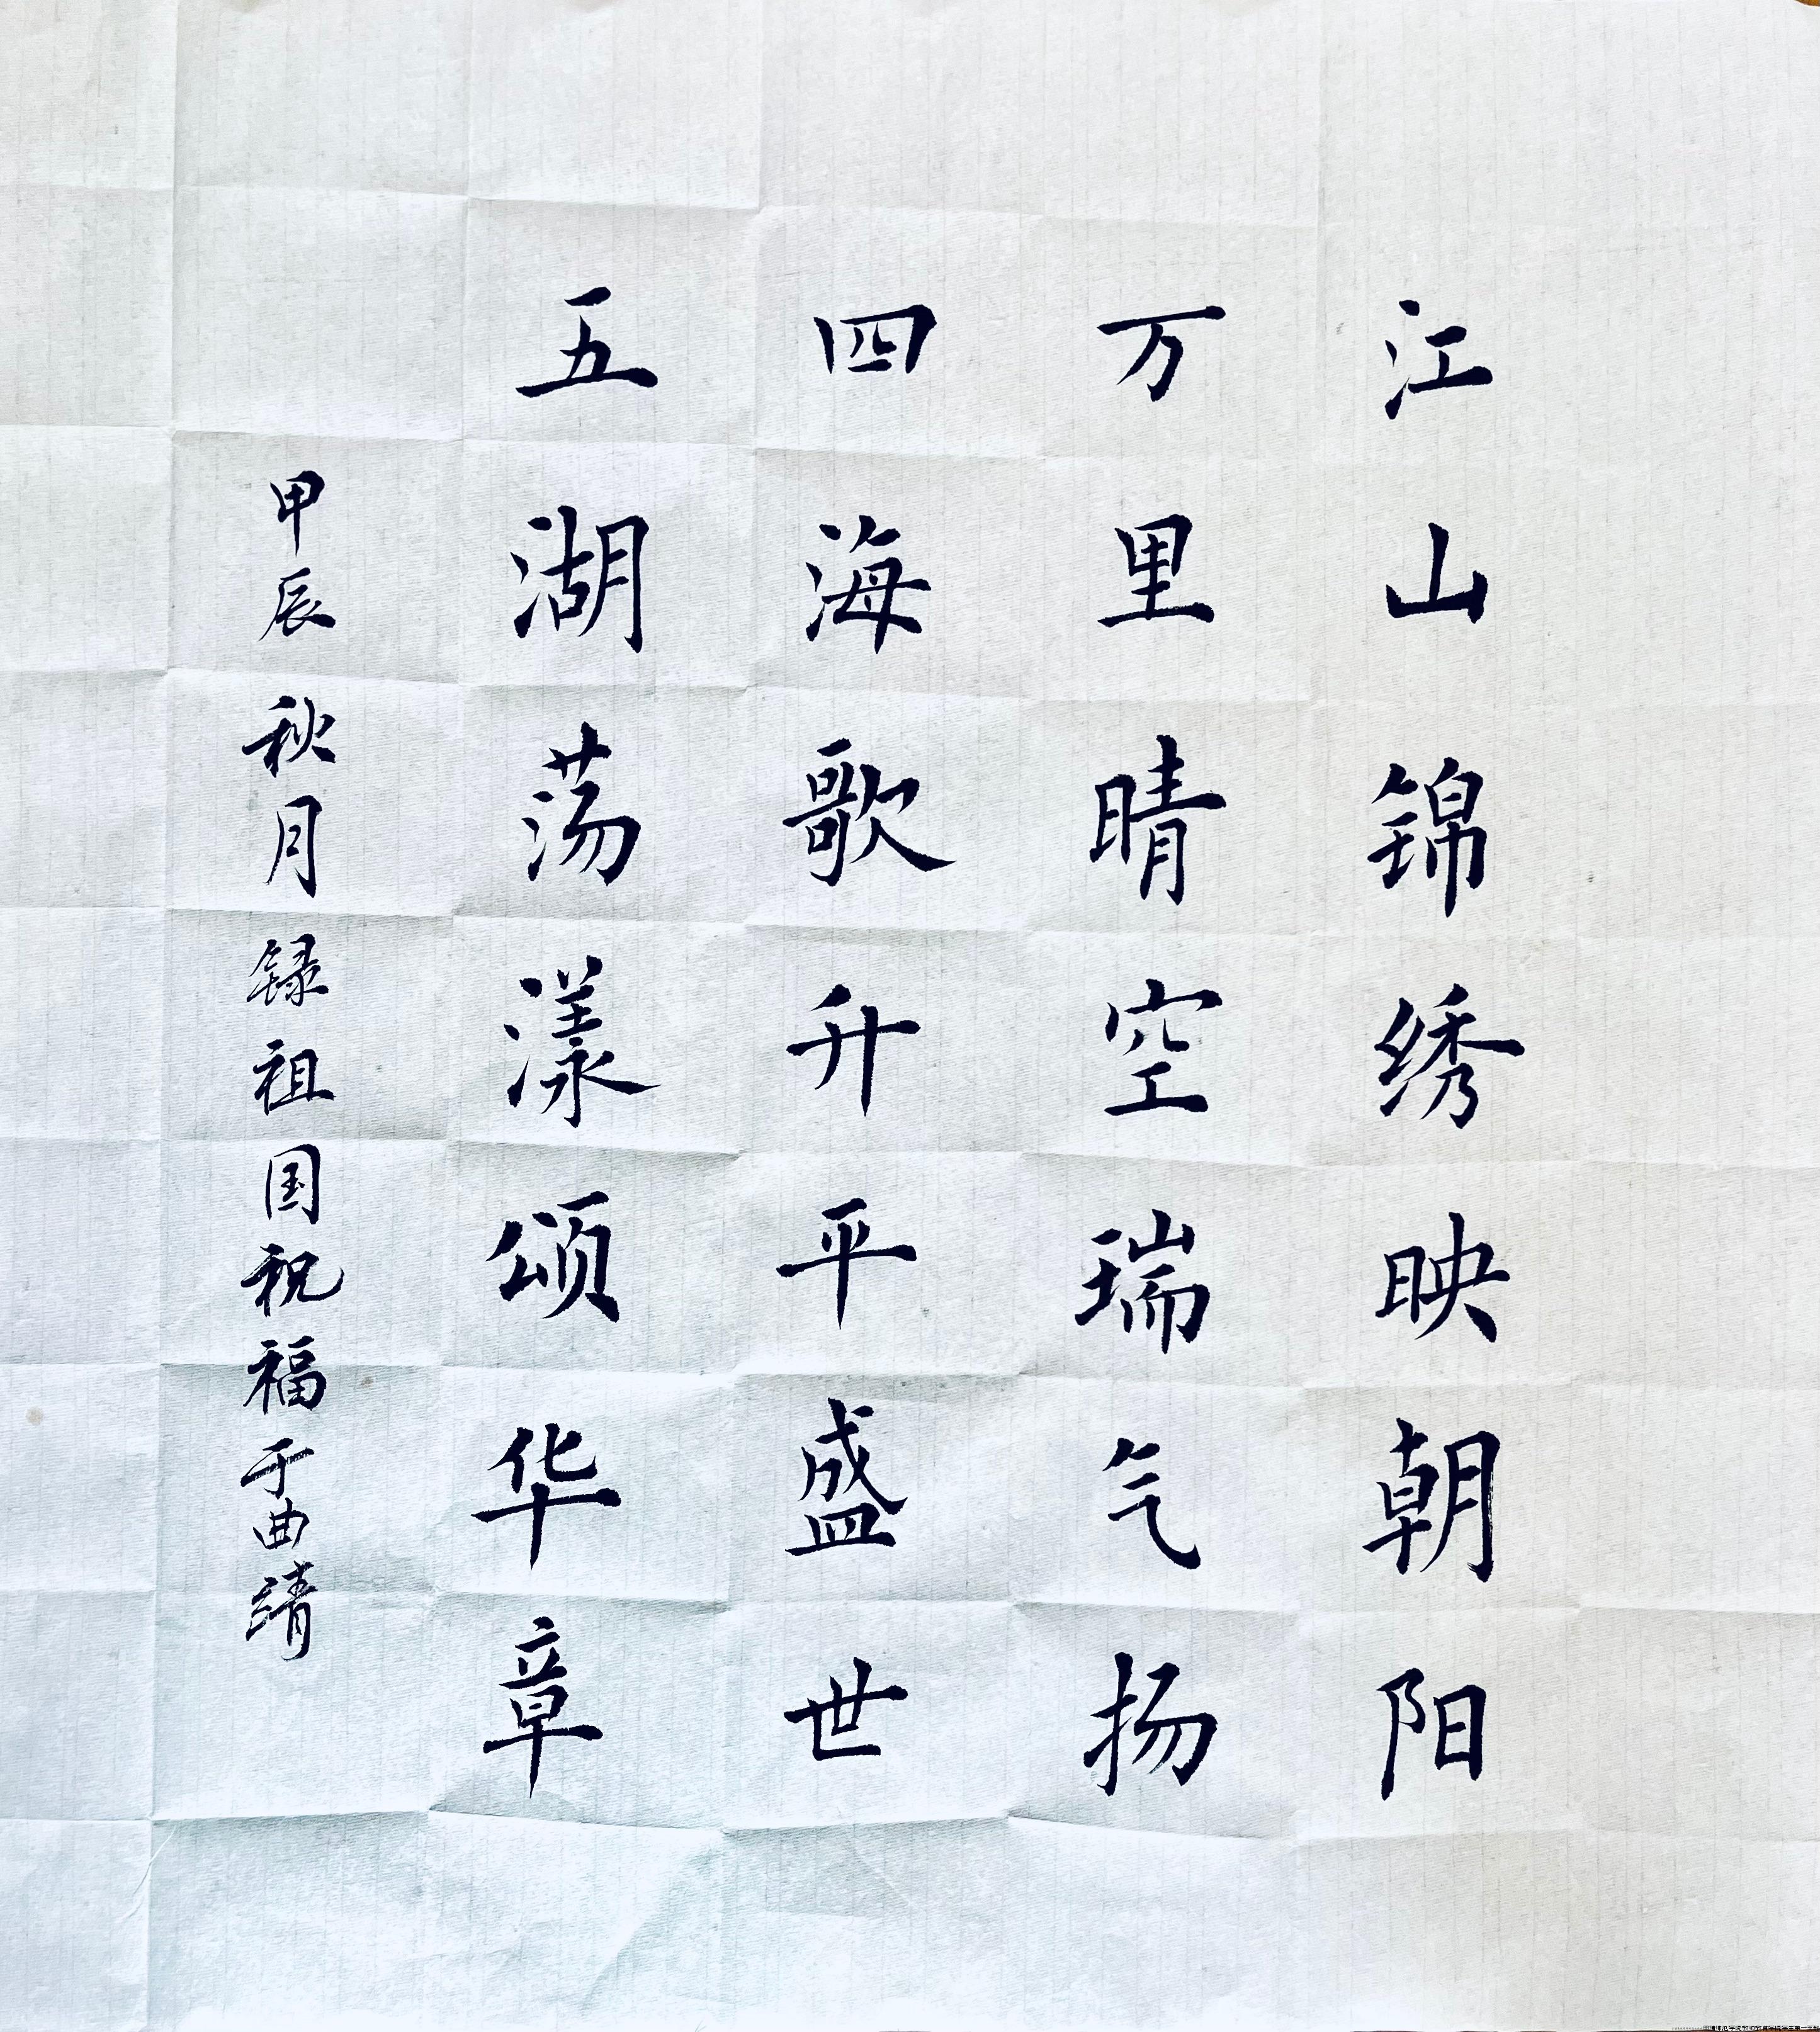 江山锦绣映朝阳
万里晴空瑞气扬
四海歌升平盛世
五湖荡漾颂华章
甲辰秋月録祖国祝福于曲靖